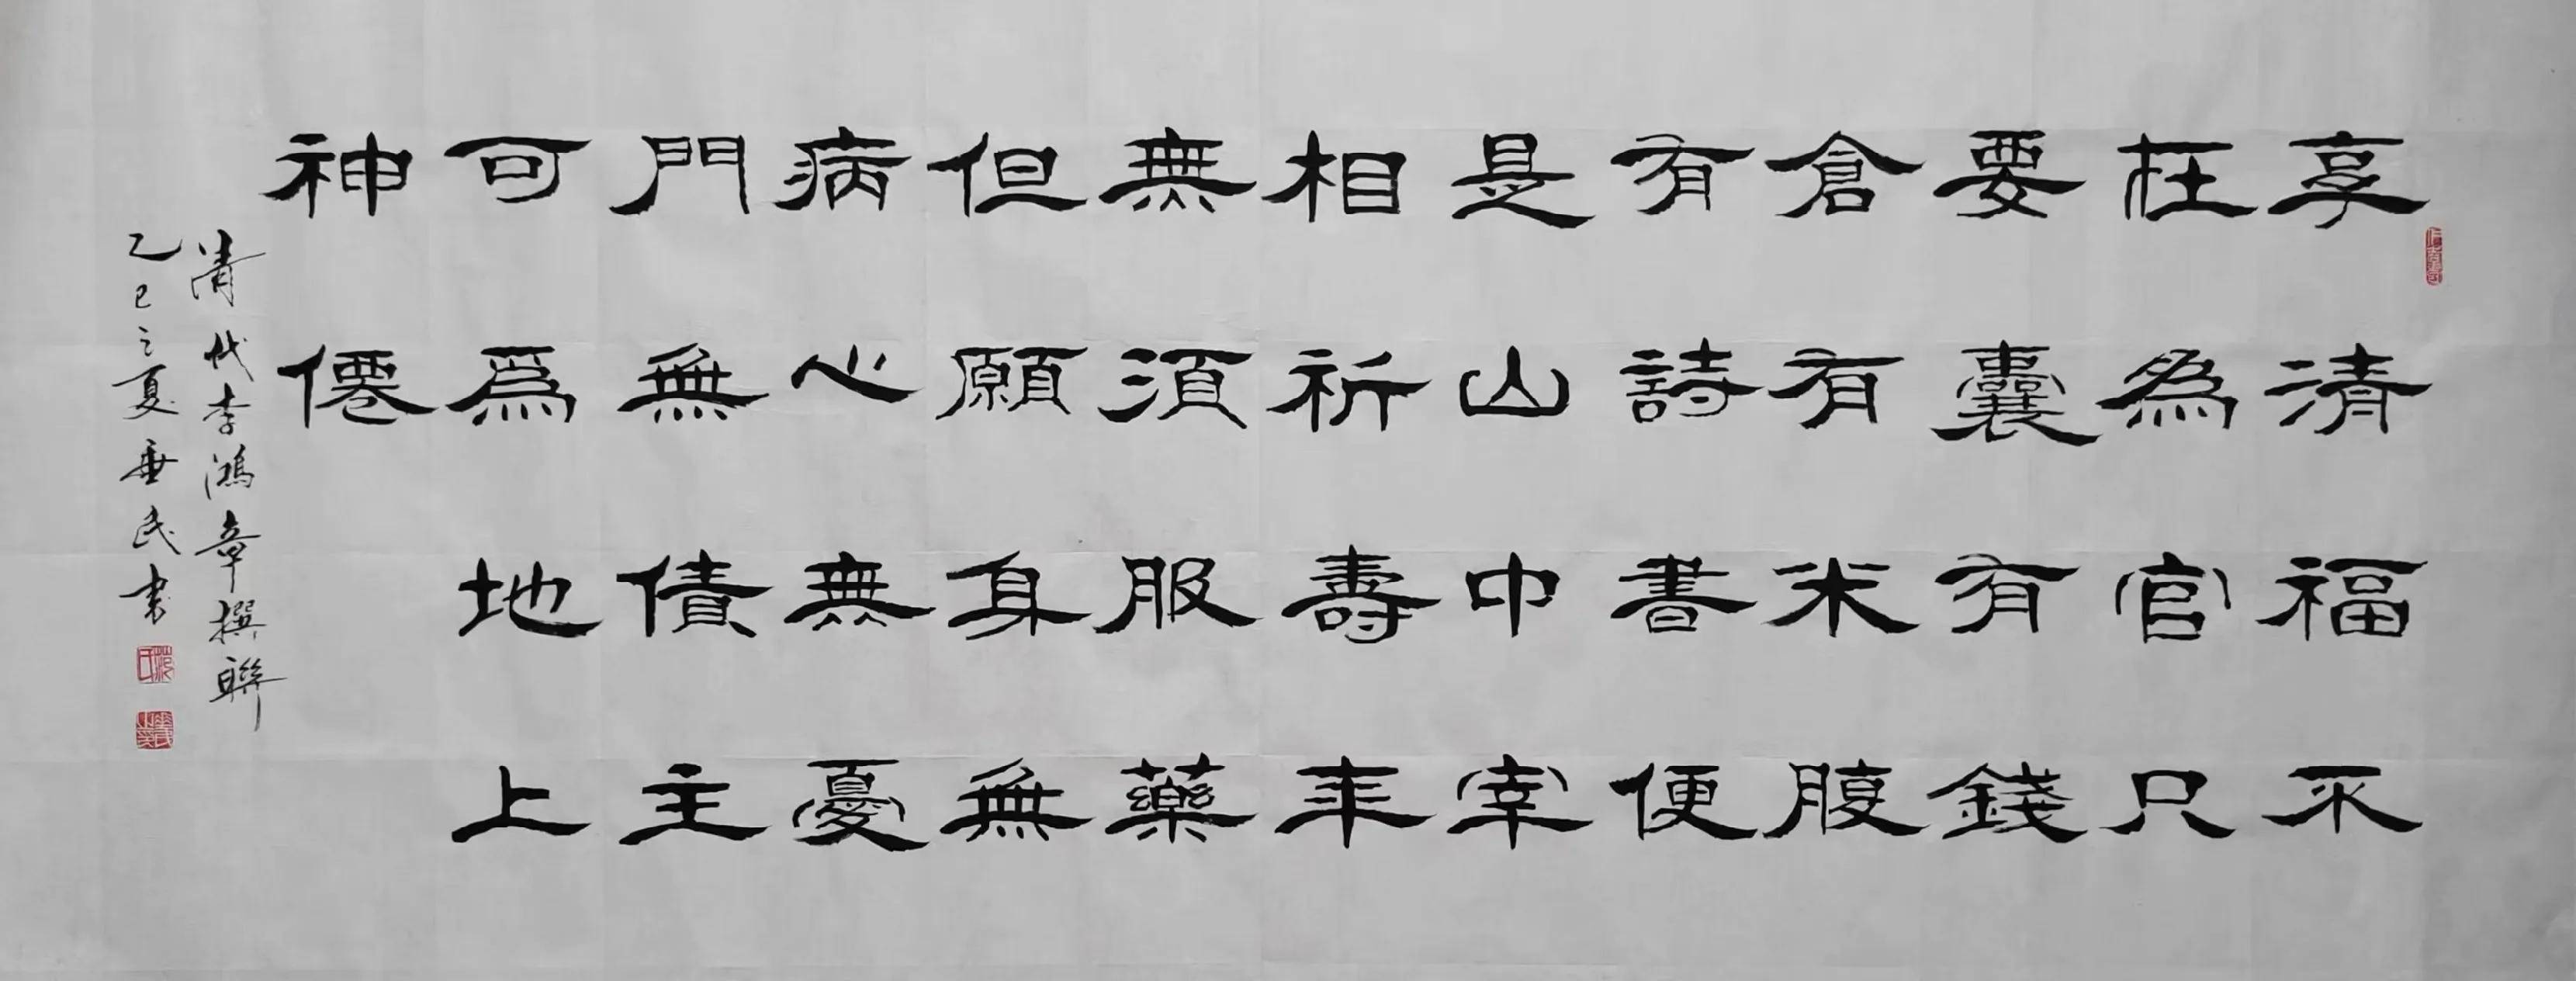 享清福不
在為官只
要囊有錢
倉有米腹
有詩書便
是山中宰
相祈壽年
無須服藥
但願身無
病心無憂
門無債主
可爲地上
神僊
清代李鴻章撰聯
乙巳之夏民書